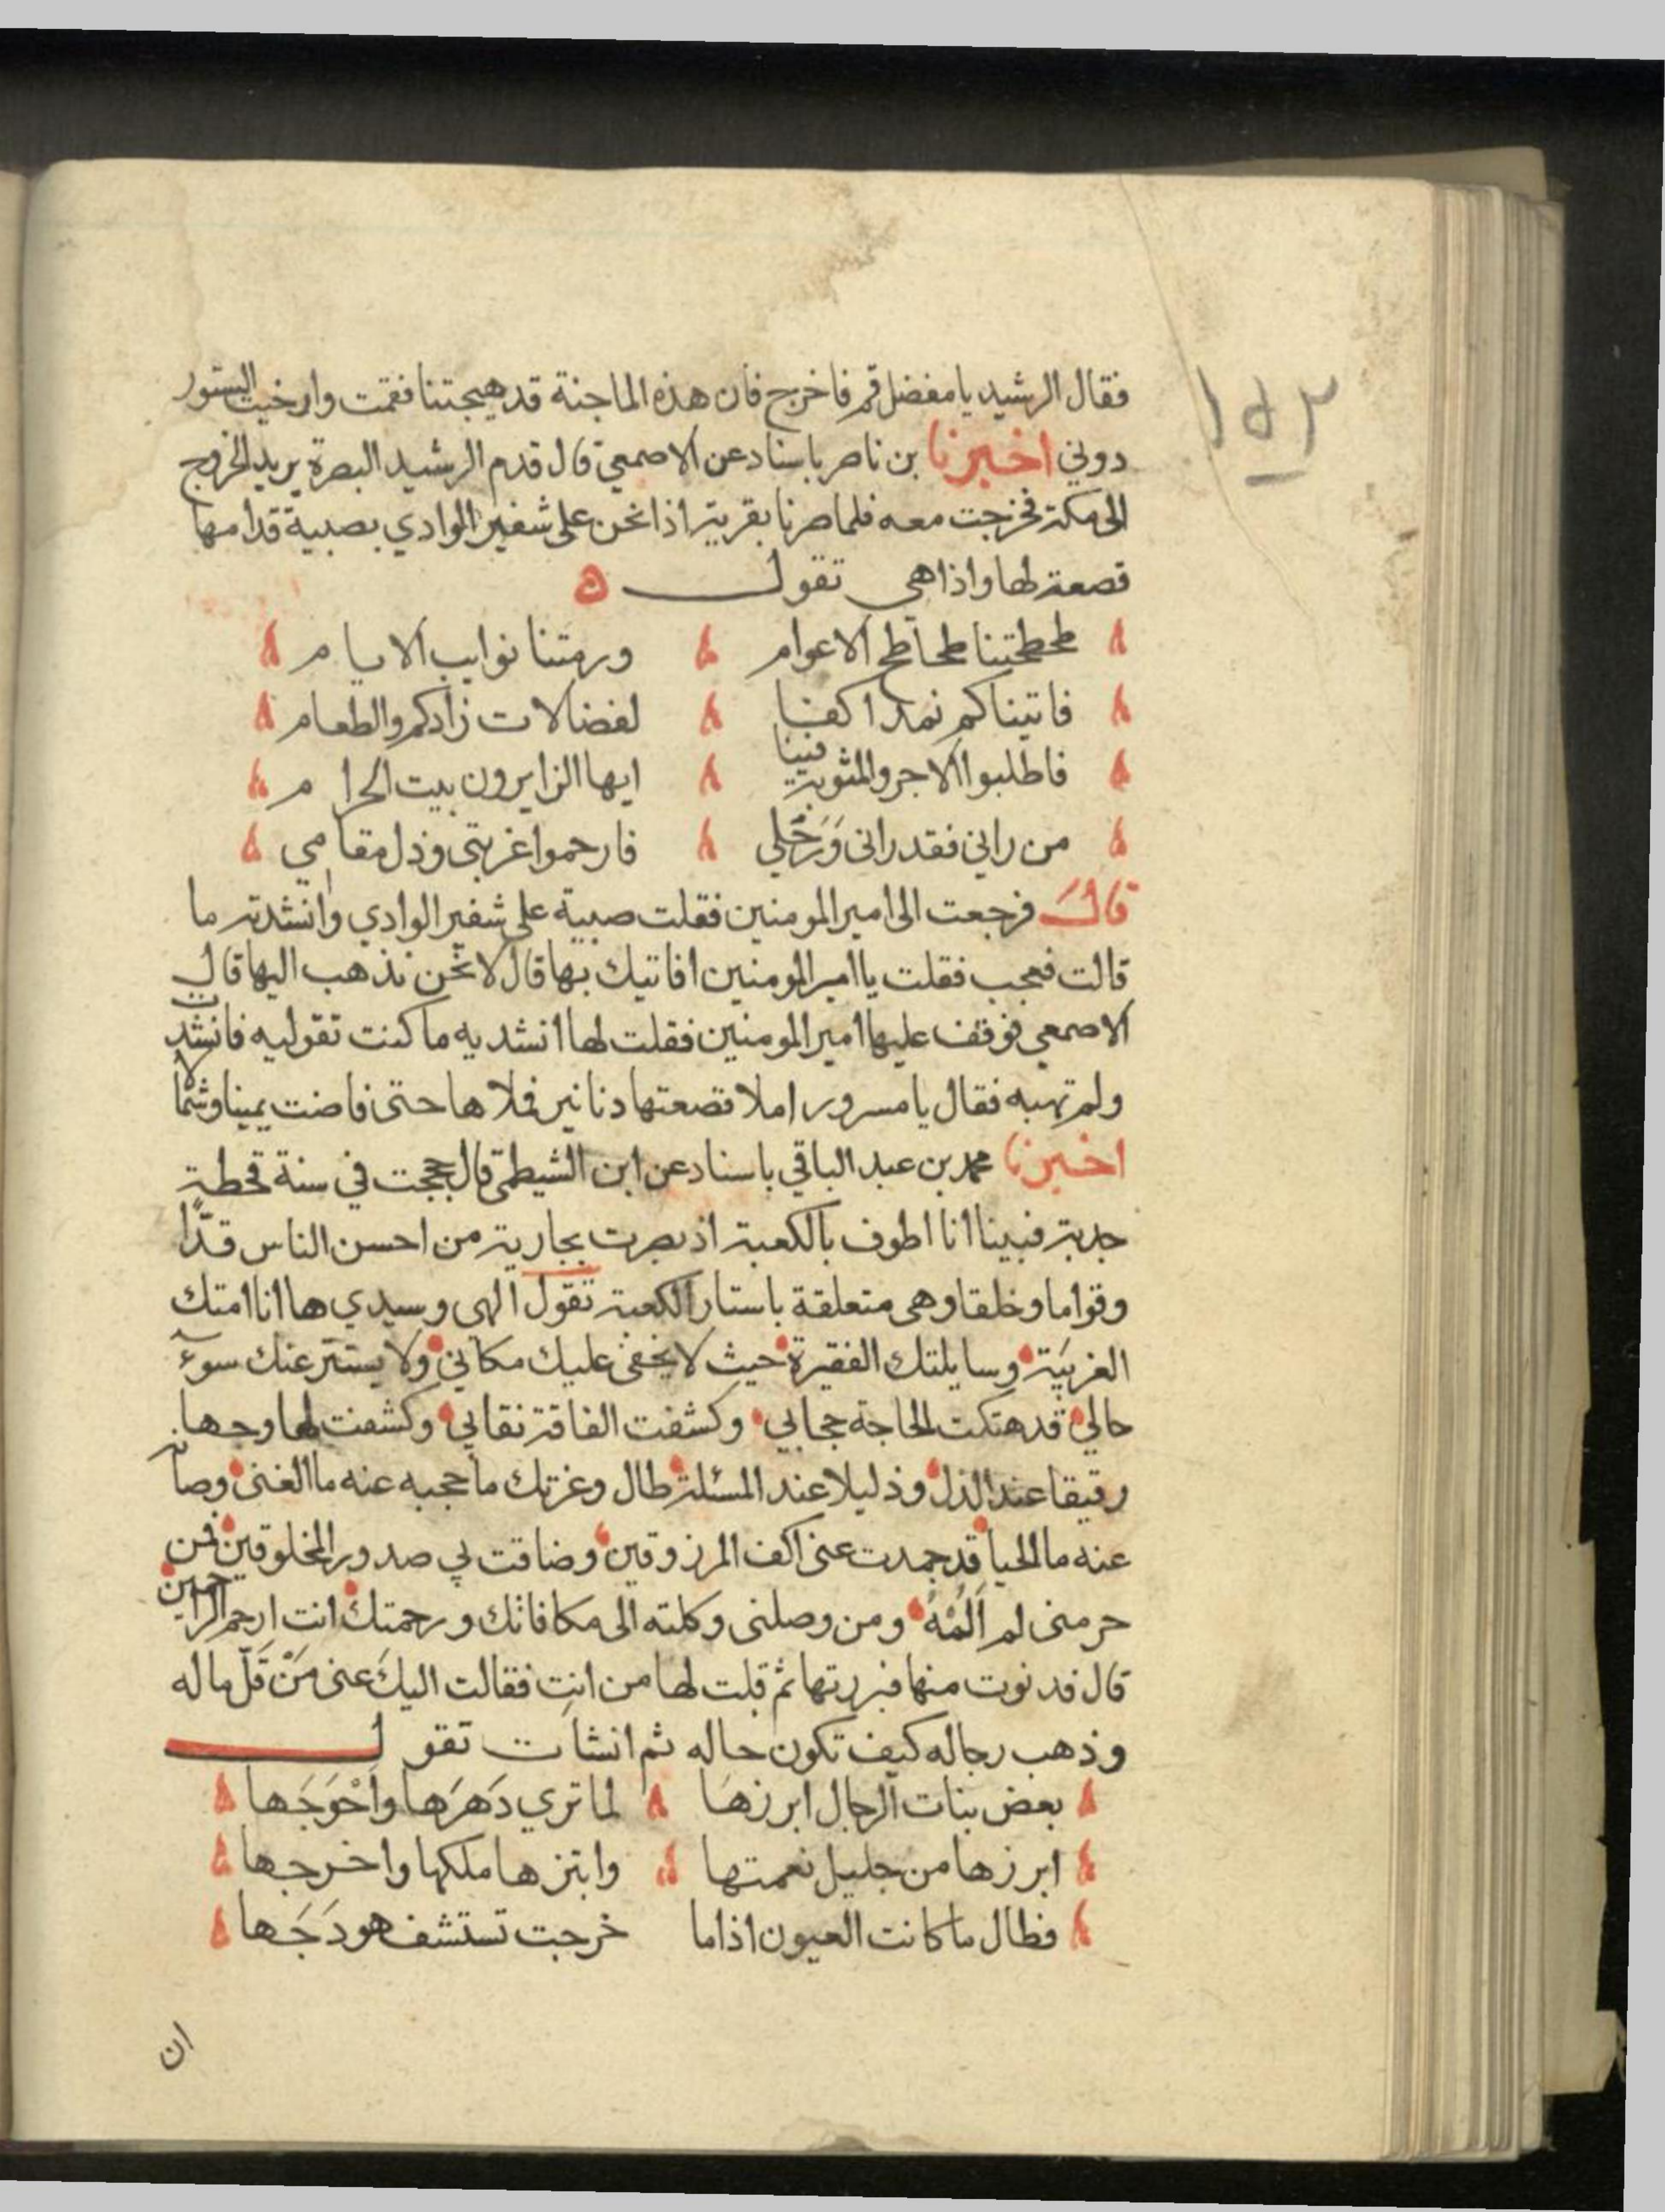 ١٥٢
فقال الرشيد يا مفضل قم فاخرج فان هذه الماجنة قد هيجتنا فقمت وارخيت الستور
دوني اخبرنا بن ناصر باسناد عن الاصمعي قال قدم الرشيد البصرة يريد الخروج
الى مكة فخرجت معه فلما صرنا بقرية اذا نحن على شفير الوادي بصبية قدامها
قصعة لها واذا هي تقول
طحطحتنا طحاطح الاعوام ورمتنا نوايب الايام
فاتيناكم نمد اكفنا لفضالات زادكم والطعام
فاطلبوا الاجر والمثوبة فينا ايها الزايرون بيت الحرام
من راني فقد راني وَرَحْلي فارحموا غربتي وذل مقامي
قال فرجعت الى امير المومنين فقلت صبية على شفير الوادي وانشدته ما
قالت فعجب فقلت يا امير المومنين افاتيك بها قال لا نحن نذهب اليها قال
الاصمعي فوقف عليها امير المومنين فقلت لها انشديه ما كنت تقوليه فانشدت
ولم تهبه فقال يا مسرور املا قصعتها دنانير فملاها حتى فاضت يمينا وشمالا
اخبرنا محمد بن عبد الباقي باسناد عن ابن الشيظمي قال حججت في سنة قحطة
جدبة فبينا انا اطوف بالكعبة اذ بصرت بجارية من احسن الناس قدًّا
وقواما وخلقا وهي متعلقة باستار الكعبة تقول الهى وسيدي ها انا امتك
الغريبة وسايلتك الفقيرة حيث لا يخفى عليك مكاني ولا يستتر عنك سوء
حالي قد هتكت الحاجة حجابي وكشفت الفاقة نقابي وكشفت لها وجها
رقيقا عند الذل وذليلا عند المسئلة طال وعزتك ما حجبه عنه ما الغنى وصانه
عنه ما الحيا قد جمدت عنى اكف المرزوقين وضاقت بي صدور المخلوقين فمن
حرمنى لم اَلُمْهُ ومن وصلنى وكلته الى مكافاتك ورحمتك انت ارحم الراحمين
قال فدنوت منها فبررتها ثم قلت لها من انتِ فقالت اليكَ عنى مَنْ قَلّ ماله
وذهب رجاله كيف تكون حاله ثم انشات تقول
بعض بنات الرجال ابرزها لما تري دَهرَها وَاَحْوَجَها
ابرزها من جليل نعمتها وابتزها ملكها واخرجها
فطال ما كانت العيون اذا ما خرجت تستشف هودَجَها
ان